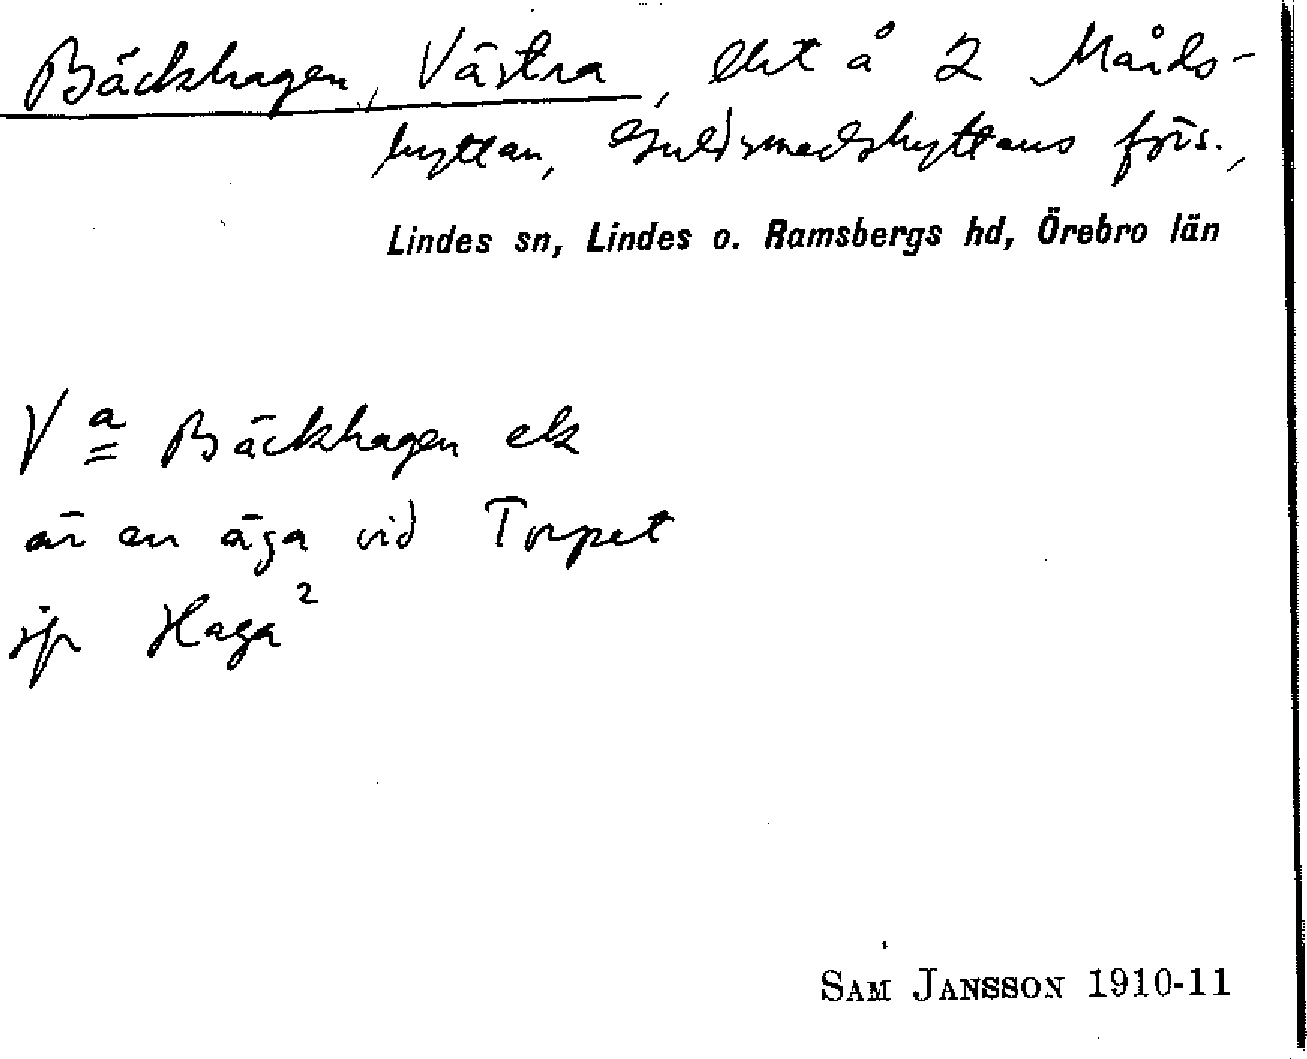 Bäckhagen, Västra, lht å 2 Mårds-
hyttan, Guldsmedshyttans förs.,
Lindes sn, Lindes o. Ramsbergs hd, Örebro län
V a Bäckhagen ek
är en äga vid Torpet
Haga 2
SAM JANSSON 1910-11